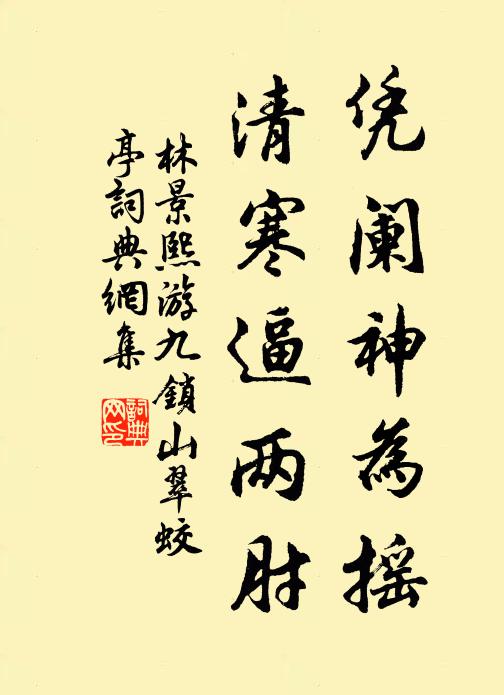 凭阑神为摇
清寒逼两肘
林景熙游九鎖山翠蛟
亭詞典網集
詞典
网印